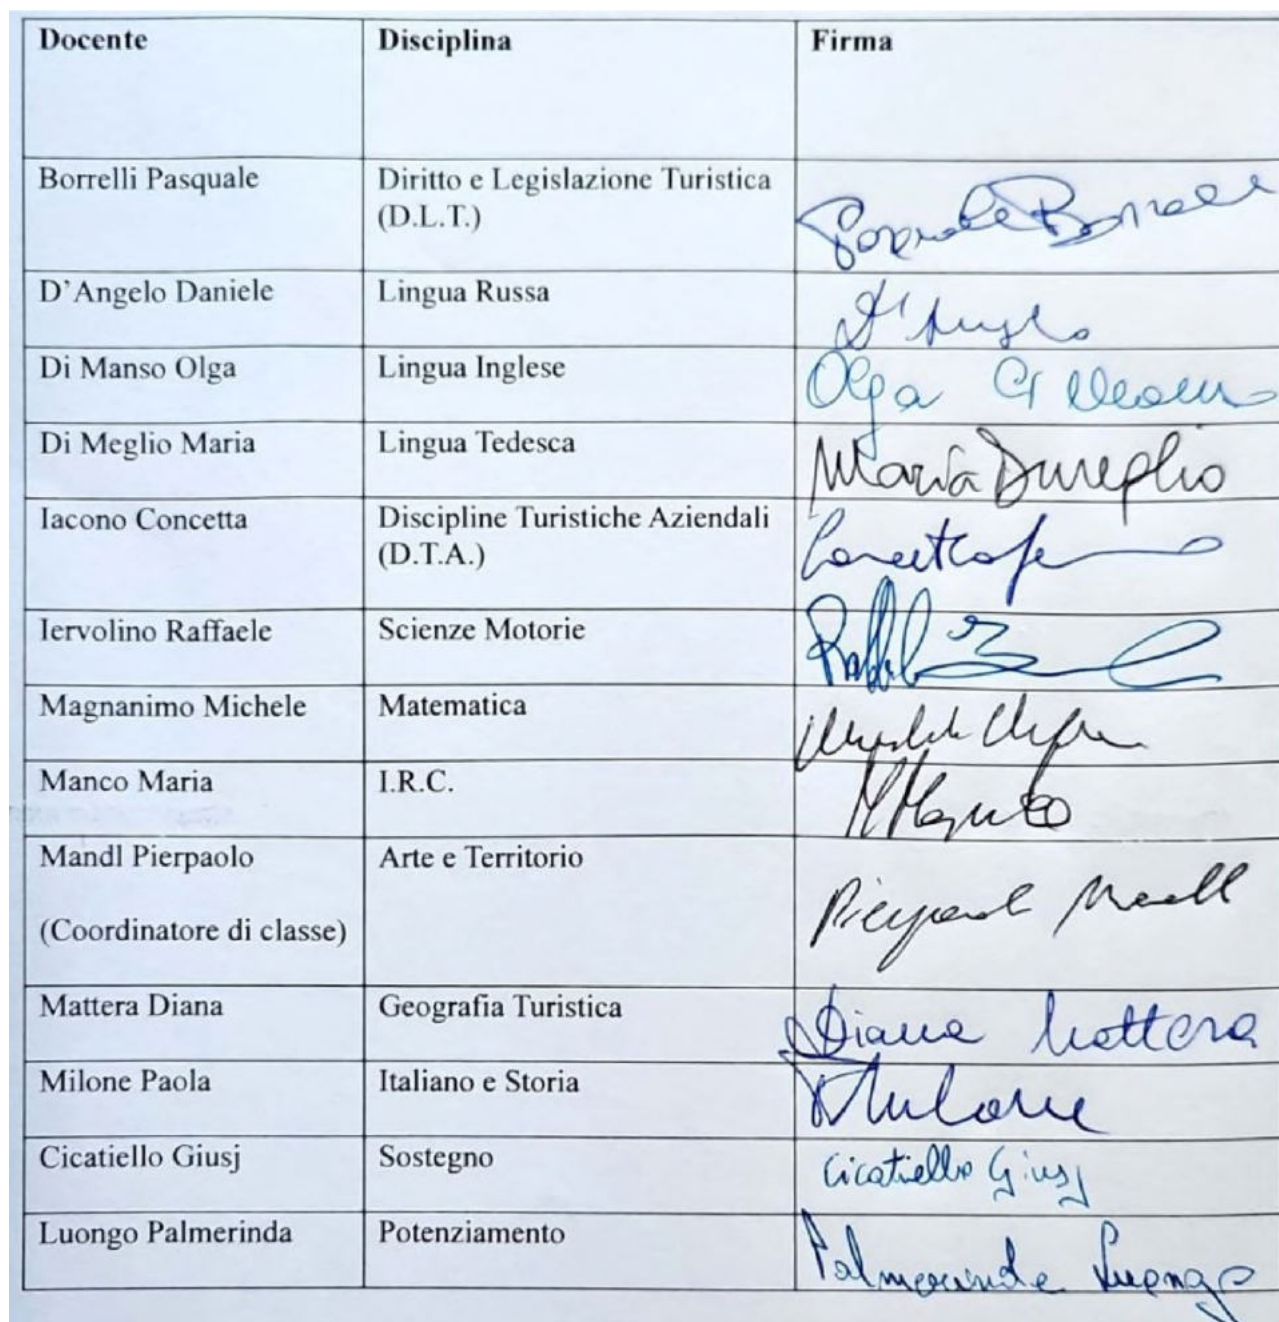 Docente Disciplina Firma
Borrelli Pasquale Diritto e Legislazione Turistica
(D.L.T.) Pasquale Borrelli
D'Angelo Daniele Lingua Russa D'Angelo
Di Manso Olga Lingua Inglese Olga Di Manso
Di Meglio Maria Lingua Tedesca Maria Di Meglio
Iacono Concetta Discipline Turistiche Aziendali
(D.T.A.)
Iervolino Raffaele Scienze Motorie
Magnanimo Michele Matematica
Manco Maria I.R.C. M Manco
Mandl Pierpaolo Arte e Territorio
(Coordinatore di classe) Pierpaolo Mandl
Mattera Diana Geografia Turistica Diana Mattera
Milone Paola Italiano e Storia P Milone
Cicatiello Giusj Sostegno Cicatiello Giusj
Luongo Palmerinda Potenziamento Palmerinda Luongo